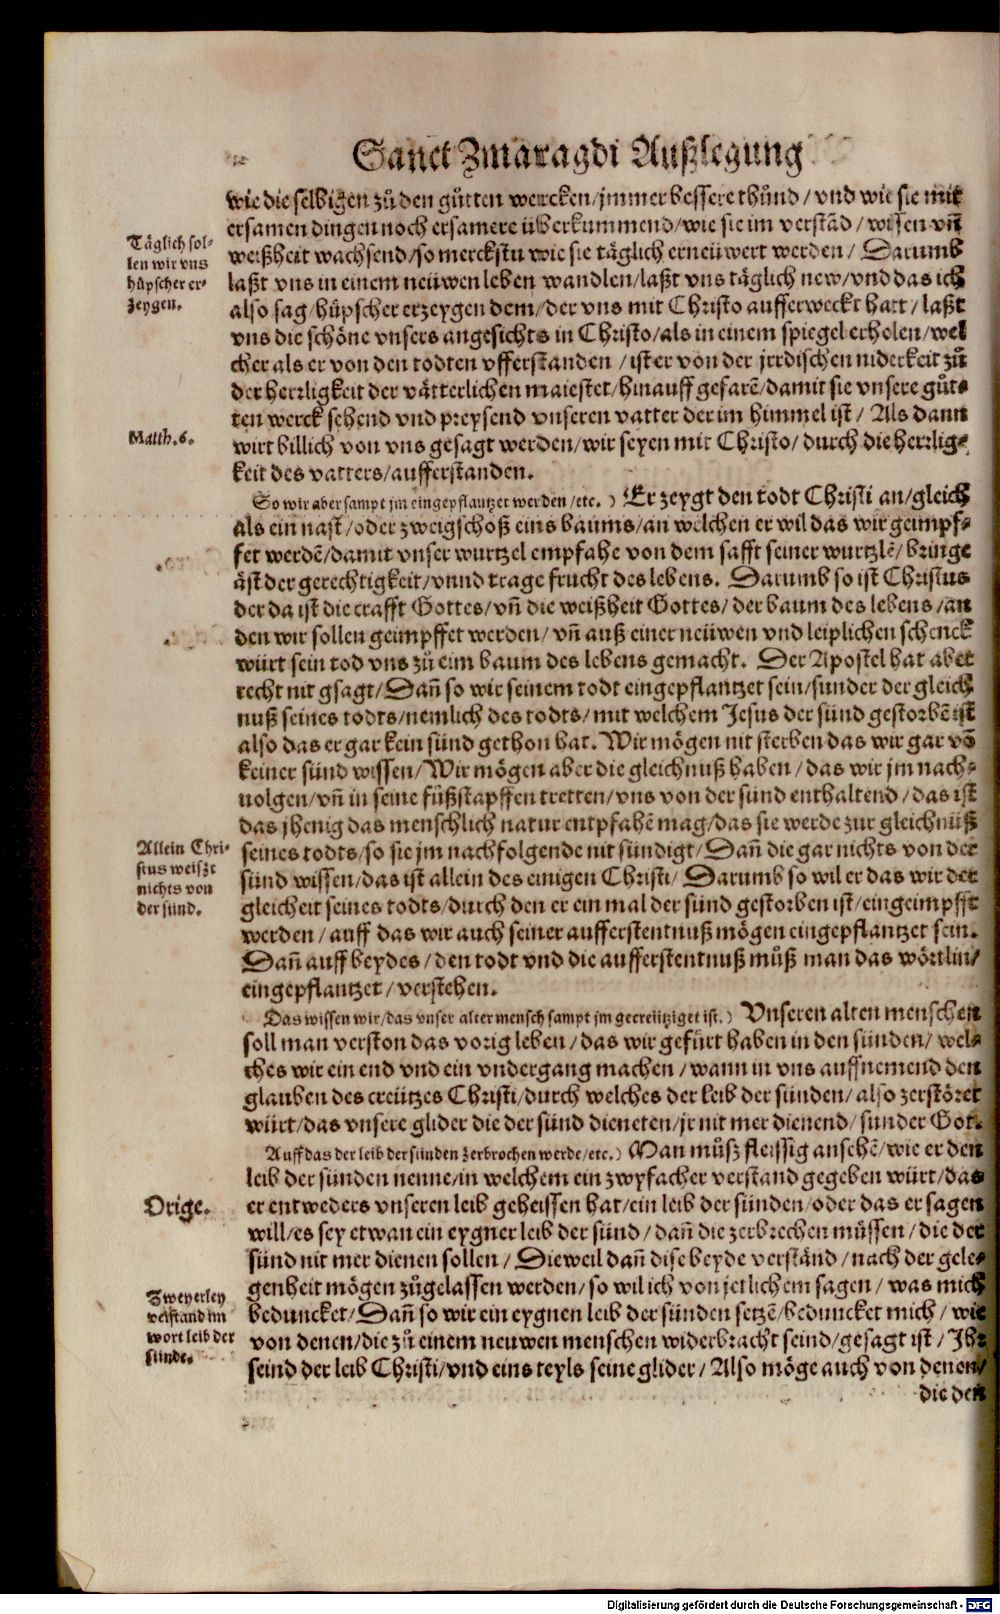 Sanct Zmaragdi Außlegung
wie die selbigen zů den gůtten wercken/jmmer bessere thůnd/vnd wie sie mit
ersamen dingen noch ersamere überkummend/wie sie im verstãd/wissen vñ
weißheit wachsend/so merckstu wie sie täglich erneüwert werden/ Darumb
laßt vns in einem neüwen leben wandlen/laßt vns täglich new/vnd das ich
also sag/hüpscher erzeygen dem/der vns mit Christo aufferweckt hatt/laßt
vns die schöne vnsers angesichts in Christo/als in einem spiegel erholen/wel
cher als er von den todten vfferstanden/ist er von der jrrdischen niderkeit zů
der herrligkeit der vätterlichen maiestet/hinauff gefarẽ/damit sie vnsere gůt-
ten werck sehend vnd preysend vnseren vatter der im himmel ist/ Als dann
wirt billich von vns gesagt werden/wir seyen mit Christo/durch die herrlig-
keit des vatters/aufferstanden.
Täglich sol-
len wir vns
hüpscher er-
zeygen.
Matth.6.
So wir aber sampt jm eingepflantzet werden/etc.) Er zeygt den todt Christi an/gleich
als ein nast/oder zweigschoß eins baums/an welchen er wil das wir geimpf-
fet werdẽ/damit vnser wurtzel empfahe von dem safft seiner wurtzlẽ/bringe
äst der gerechtigkeit/vnnd trage frucht des lebens. Darumb so ist Christus
der da ist die crafft Gottes/vñ die weißheit Gottes/der baum des lebens/an
den wir sollen geimpffet werden/vñ auß einer neüwen vnd leiplichen schenck
würt sein tod vns zů eim baum des lebens gemacht. Der Apostel hat aber
recht nit gsagt/Dañ so wir seinem todt eingepflantzet sein/sunder der gleich
nuß seines todts/nemlich des todts/mit welchem Jesus der sünd gestorbẽ ist
also das er gar kein sünd gethon hat. Wir mögen nit sterben das wir gar võ
keiner sünd wissen/Wir mögen aber die gleichnuß haben/das wir jm nach-
uolgen/vñ in seine fůßstapffen tretten/vns von der sünd enthaltend/das ist
das jhenig das menschlich natur entpfahẽ mag/das sie werde zur gleichnüß
seines todts/so sie jm nachfolgende nit sündigt/Dañ die gar nichts von der
sünd wissen/das ist allein des einigen Christi/ Darumb so wil er das wir der
gleicheit seines todts/durch den er ein mal der sünd gestorben ist/eingeimpfft
werden/auff das wir auch seiner aufferstentnuß mögen eingepflantzet sein.
Dañ auff beydes/den todt vnd die aufferstentnuß můß man das wörtlin/
eingepflantzet/verstehen.
Allein Chri-
stus weißt
nichts von
der sünd.
Das wissen wir/das vnser alter mensch sampt jm gecreütziget ist.) Vnseren alten menschen
soll man verston das vorig leben/das wir gefürt haben in den sünden/wel-
ches wir ein end vnd ein vndergang machen/wann in vns auffnemend den
glauben des creützes Christi/durch welches der leib der sünden/also zerstöret
würt/das vnsere glider die der sünd dieneten/jr nit mer dienend/sunder Got.
Auff das der leib der sünden zerbrochen werde/etc.) Man můsz fleissig ansehẽ/wie er den
leib der sünden nenne/in welchem ein zwyfacher verstand gegeben würt/das
er entweders vnseren leib geheissen hat/ein leib der sünden/oder das er sagen
will/es sey etwan ein eygner leib der sünd/dañ die zerbrechen müssen/die der
sünd nit mer dienen sollen/ Dieweil dañ dise beyde verständ/nach der gele-
genheit mögen zůgelassen werden/so wil ich von jetlichem sagen/was mich
beduncket/Dañ so wir ein eygnen leib der sünden setzẽ/beduncket mich/wie
von denen/die zů einem neuwen menschen widerbracht seind/gesagt ist/Ihr
seind der leib Christi/vnd eins teyls seine glider/Also möge auch von denen/
die den
Orige.
Zweyerley
verstand im
wort leib der
sünde.
Digitalisierung gefördert durch die Deutsche Forschungsgemeinschaft - DFG